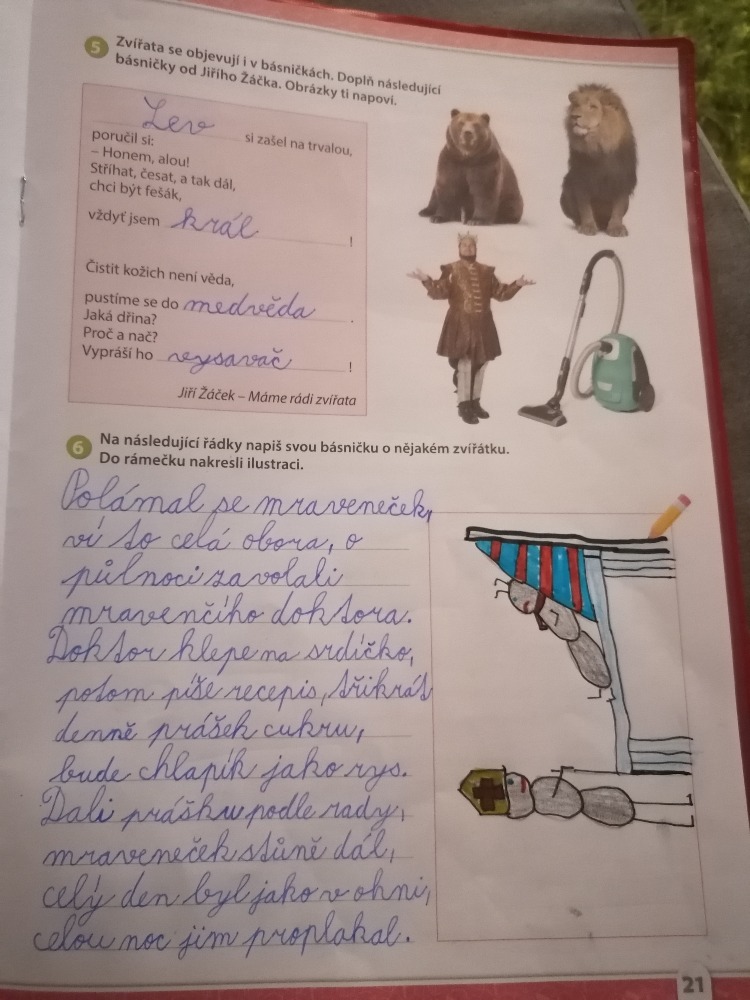 5 Zvířata se objevují i v básničkách. Doplň následující
básničky od Jiřího Žáčka. Obrázky ti napoví.
Lev si zašel na trvalou,
poručil si:
– Honem, alou!
Stříhat, česat, a tak dál,
chci být fešák,
vždyť jsem král !
Čistit kožich není věda,
pustíme se do medvěda .
Jaká dřina?
Proč a nač?
Vypráší ho vysavač !
Jiří Žáček – Máme rádi zvířata
6 Na následující řádky napiš svou básničku o nějakém zvířátku.
Do rámečku nakresli ilustraci.
Polámal se mraveneček,
ví to celá obora, o
půlnoci zavolali
mravenčího doktora.
Doktor klepe na srdíčko,
potom píše recepis, třikrát
denně prášek cukru,
bude chlapík jako rys.
Dali prášku podle rady,
mraveneček stůně dál,
celý den byl jako v ohni,
celou noc jim proplakal.
21